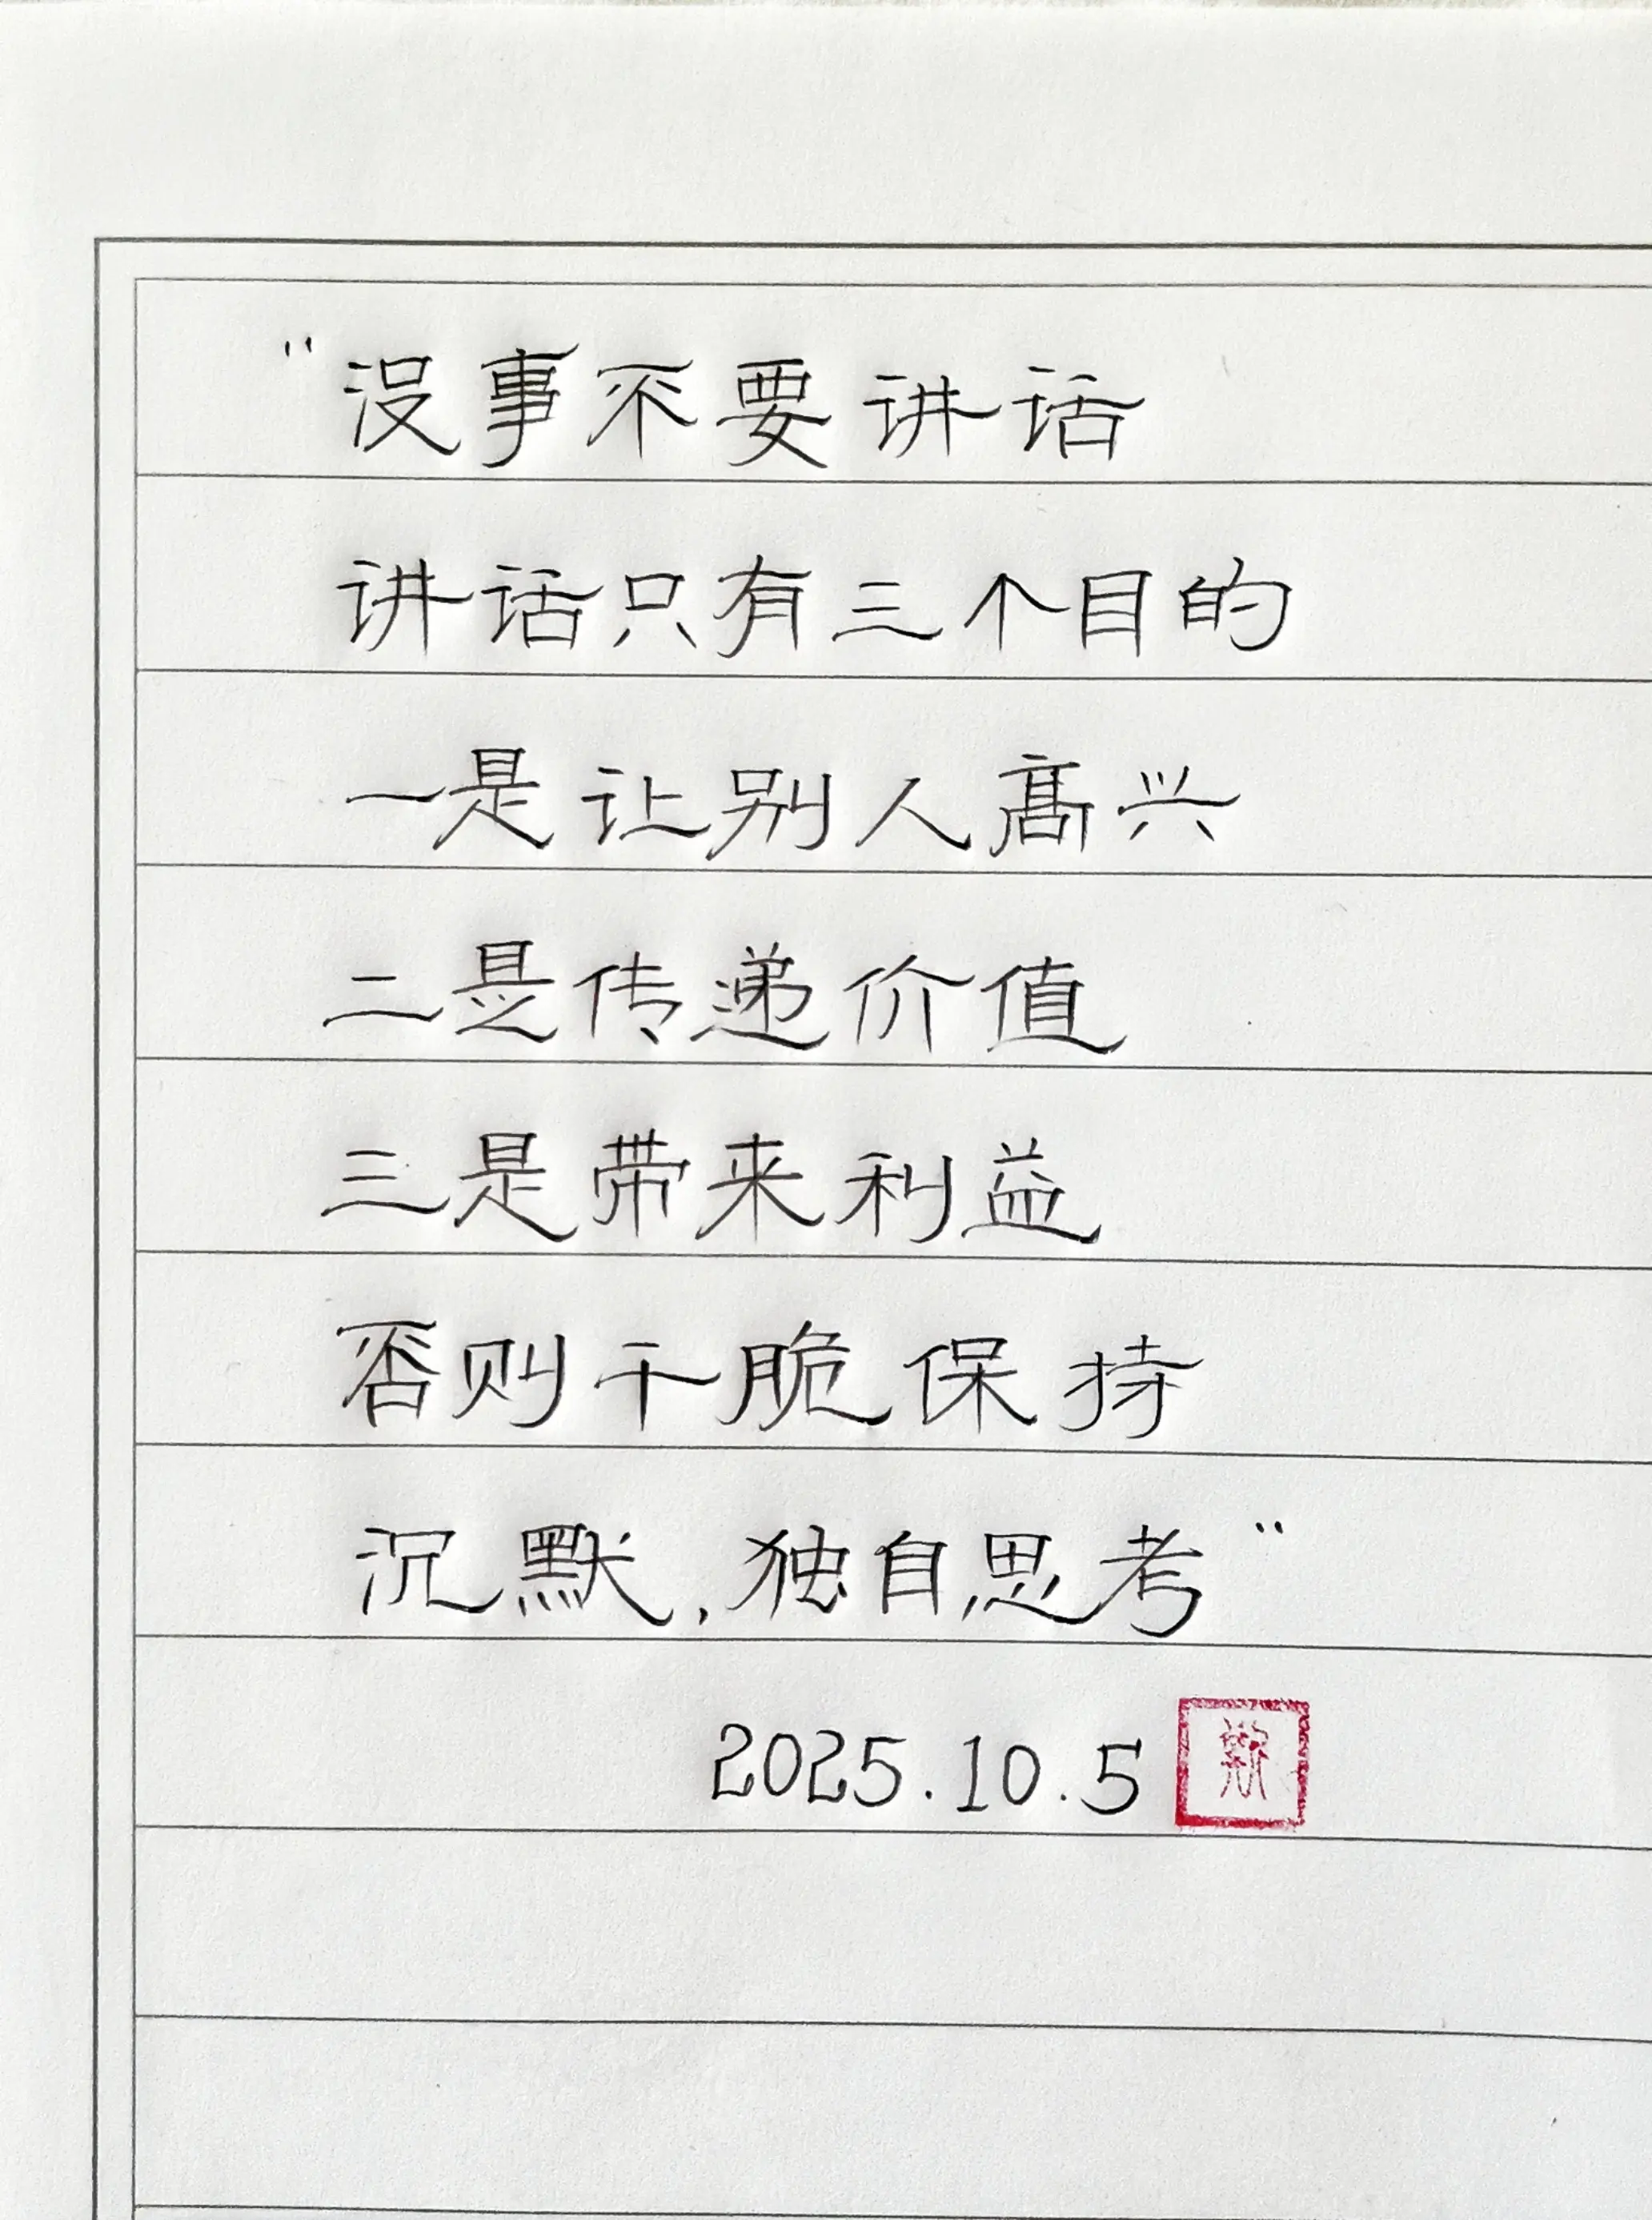 “没事不要讲话
讲话只有三个目的
一是让别人髙兴
二是传递价值
三是带来利益
否则干脆保持
沉默，独自思考”
2025.10.5